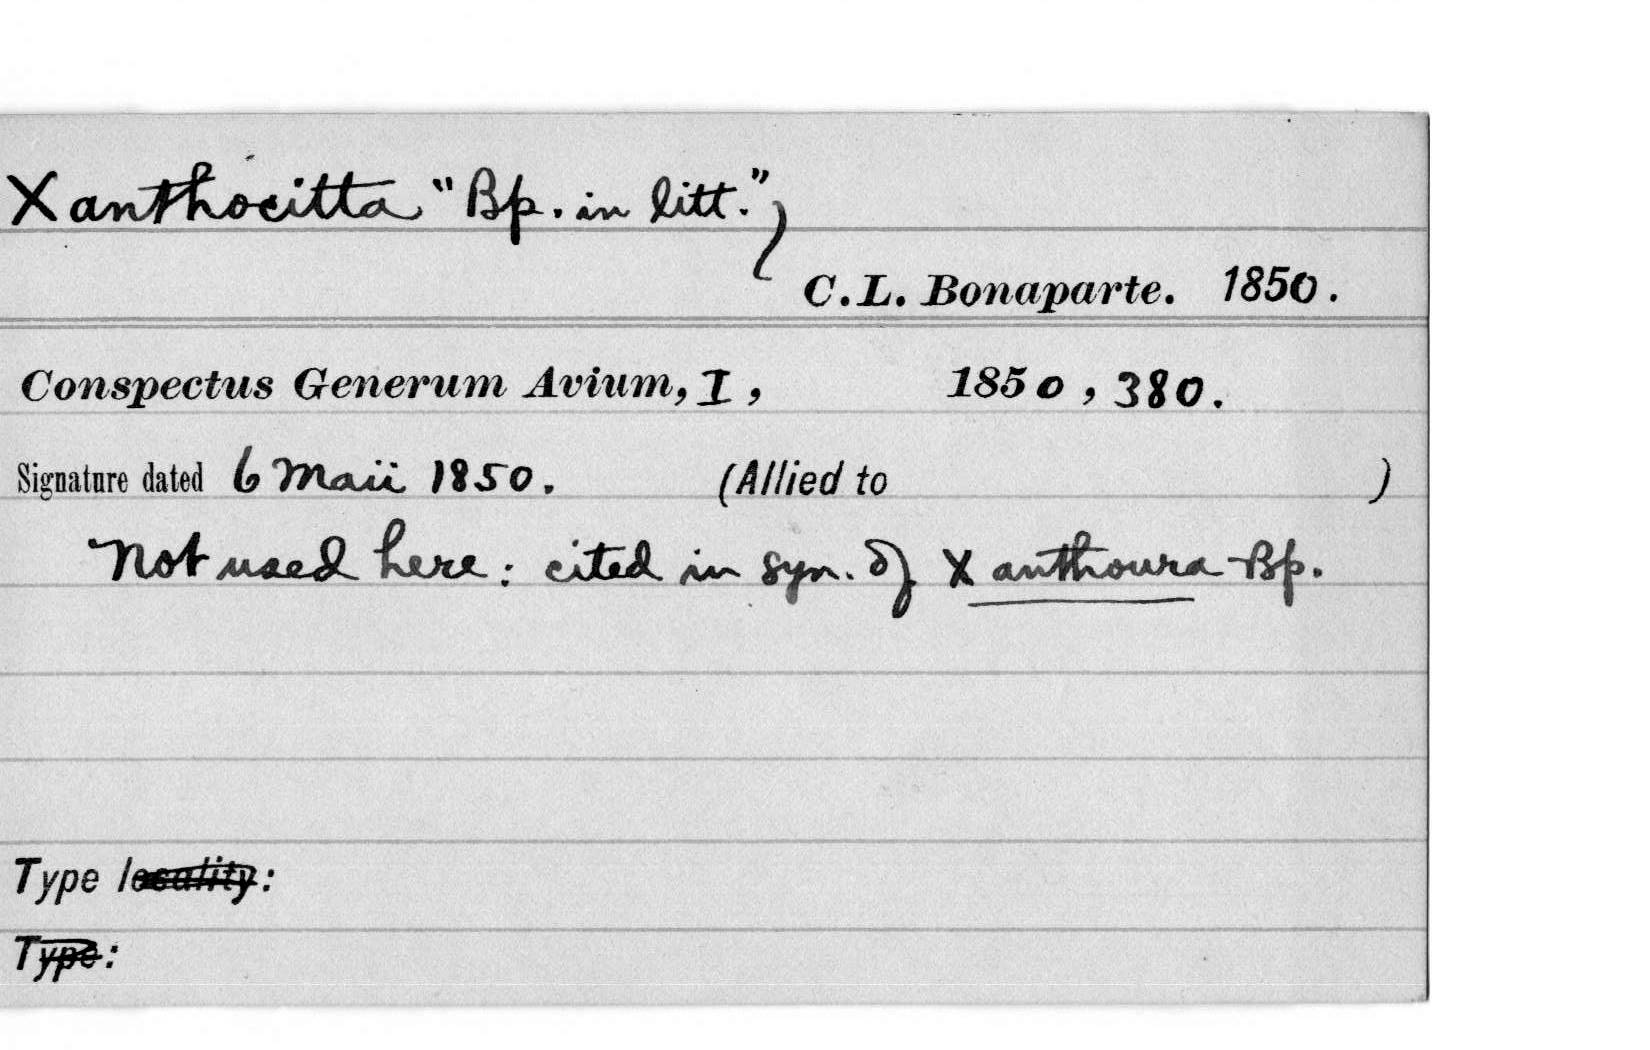 Xanthocitta "Bp. in litt.",
C.L. Bonaparte. 1850.
Conspectus Generum Avium, I, 1850, 380.
Signature dated 6 Maii 1850. (Allied to )
Not used here: cited in syn. of Xanthoura Bp.
Type locality:
Type: